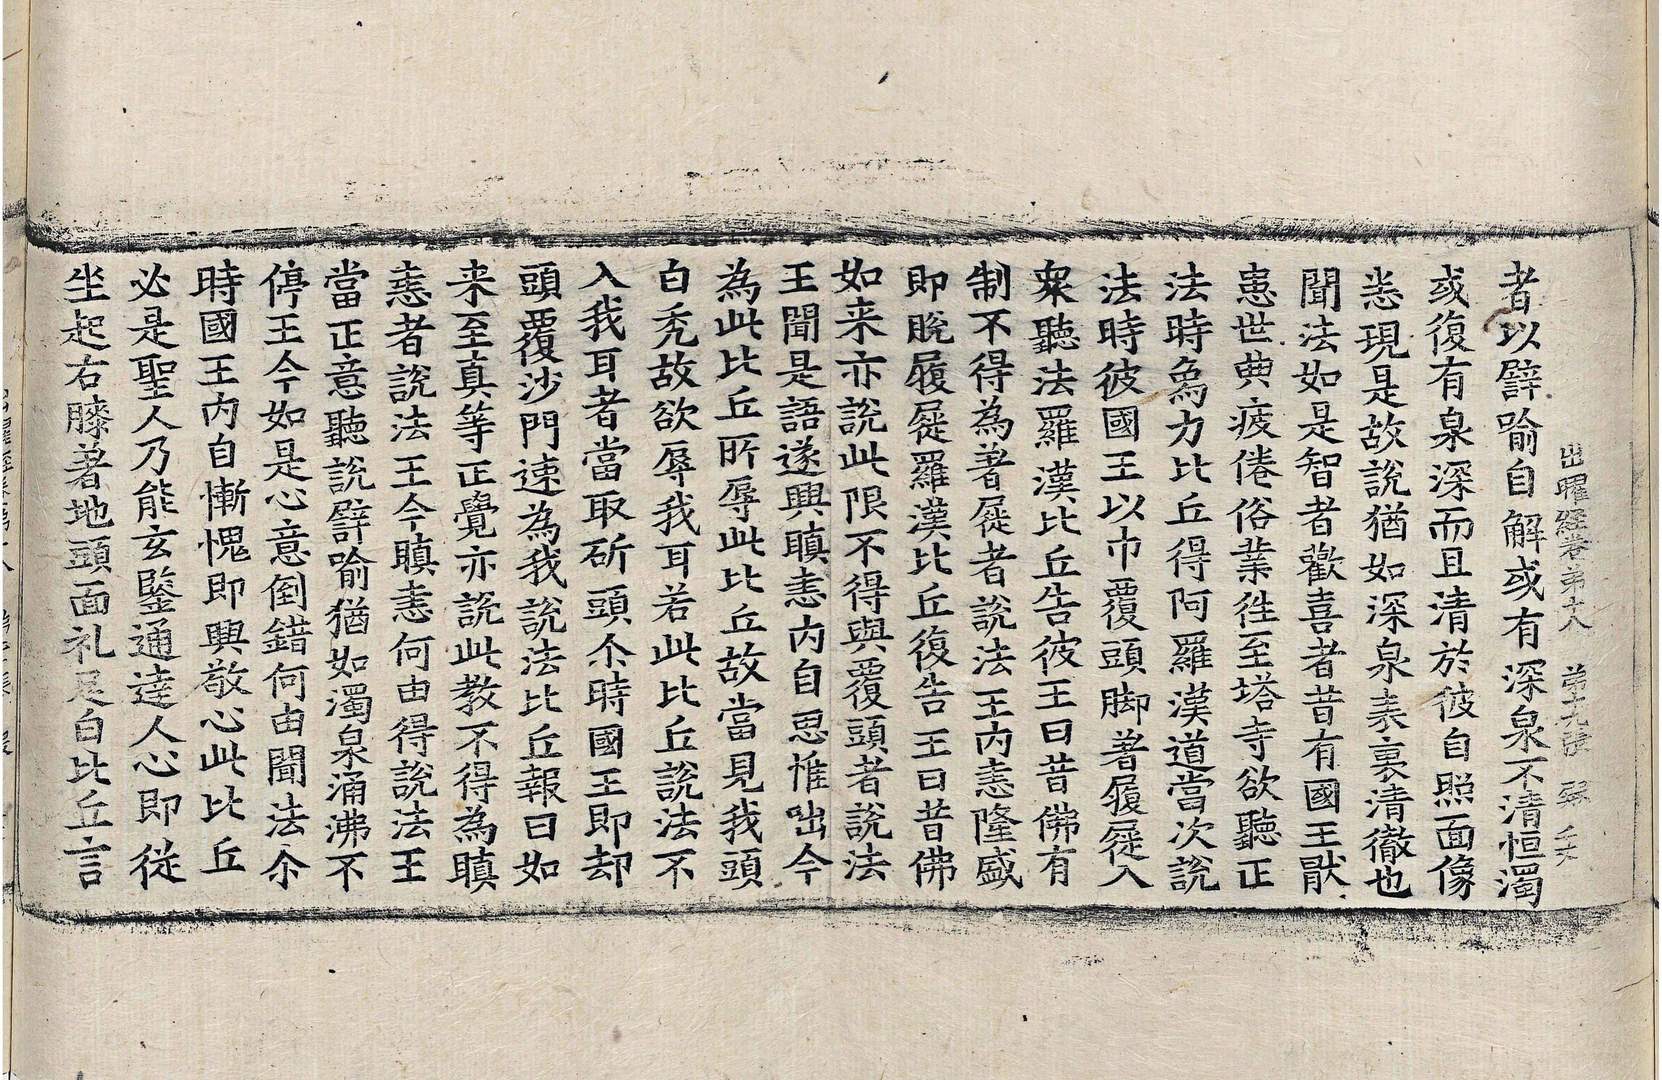 出曜經卷第十八　第九張　綵
者以譬喻自解或有深泉不清恒濁
或復有泉深而且清於彼自照面像
悉現是故說猶如深泉表裏清徹也
聞法如是智者歡喜者昔有國王猒
患世典疲惓俗業徃至塔寺欲聽正
法時象力比丘得阿羅漢道當次說
法時彼國王以巾覆頭脚著履屣入
衆聽法羅漢比丘告彼王曰昔佛有
制不得為著屣者說法王內恚隆盛
即脫履屣羅漢比丘復告王曰昔佛
如来亦說此限不得與覆頭者說法
王聞是語遂興瞋恚內自思惟咄今
為此比丘所辱此比丘故當見我頭
白禿故欲辱我耳若此比丘說法不
入我耳者當取斫頭尒時國王即却
頭覆沙門速為我說法比丘報曰如
来至真等正覺亦說此教不得為瞋
恚者說法王今瞋恚何由得說法王
當正意聽說譬喻猶如濁泉涌沸不
停王今如是心意倒錯何由聞法尒
時國王內自慚愧即興敬心此比丘
必是聖人乃能玄鑒通達人心即從
坐起右膝著地頭面礼足白比丘言